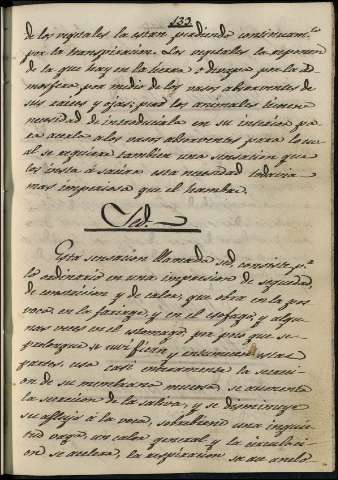 133.
de los vegetales la estan perdiendo continuam.te
por la transpiracion. Los vegetales la reponen
de la que hay en la tierra y derrama por la at-
mosfera por medio de los vasos absorventes de
sus raices y ojas; pero los animales tienen
necesidad de introducirla en su interior pa-
ra darla a los vasos absorventes para lo cu-
al se requiere tambien una sensacion que
los insta á saciar esta necesidad todavia
mas imperiosa que el hambre.
Sed.
Esta sensacion llamada sed, consiste p.r
lo ordinario en una impresion de sequedad,
de constriccion y de calor, que obra en la pos
voca, en la faringe, y en el esofago, y algu-
nas veces en el estomago: por poco que se
prolongue se
partes, usa casi enteramente la secreci-
on de su membrana mucosa, se aumenta
la secrecion de la saliva, y se disminuye
su aflujo á la voca, sobreviene una inquie-
tud vaga, un calor general, y la circulaci-
on se acelera, la respiracion se